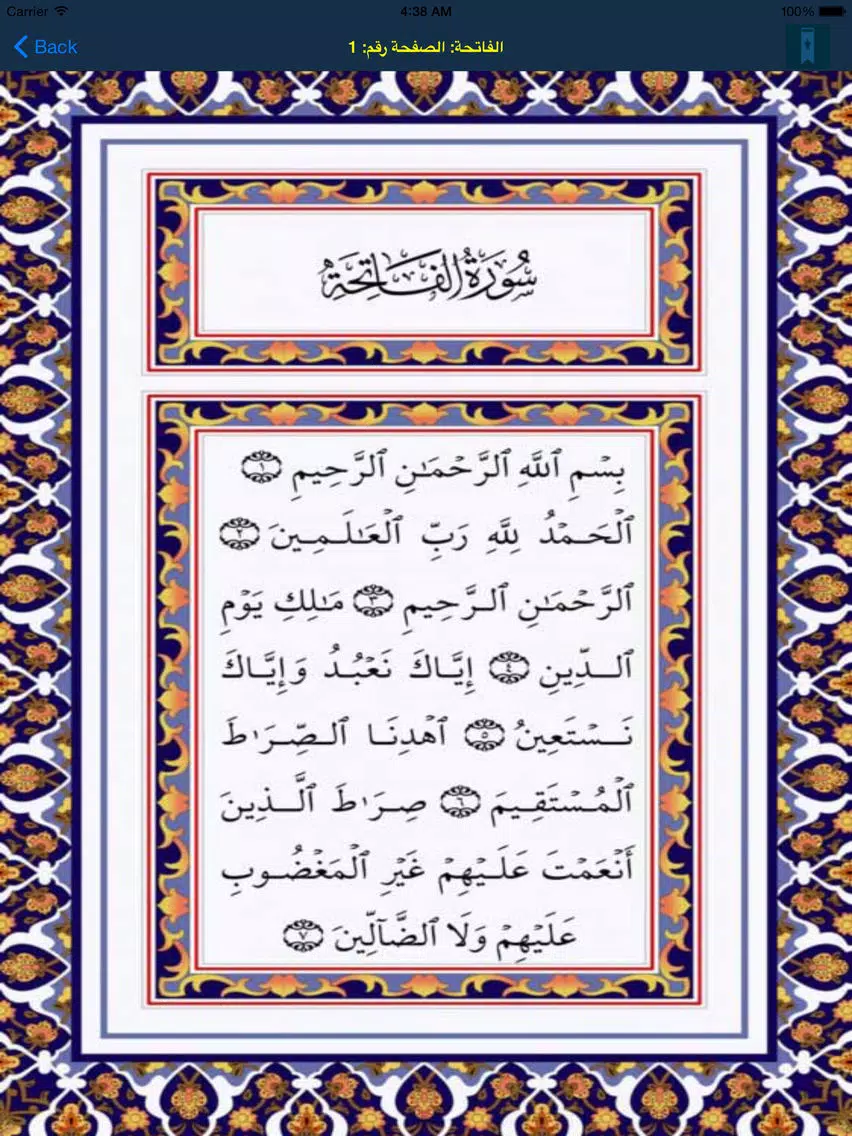 Carrier 4:38 AM 100%
Back الفاتحة: الصفحة رقم: 1
سُورَةُ الفَاتِحَةِ
بِسۡمِ ٱللَّهِ ٱلرَّحۡمَٰنِ ٱلرَّحِيمِ ١
ٱلۡحَمۡدُ لِلَّهِ رَبِّ ٱلۡعَٰلَمِينَ ٢
ٱلرَّحۡمَٰنِ ٱلرَّحِيمِ ٣ مَٰلِكِ يَوۡمِ
ٱلدِّينِ ٤ إِيَّاكَ نَعۡبُدُ وَإِيَّاكَ
نَسۡتَعِينُ ٥ ٱهۡدِنَا ٱلصِّرَٰطَ
ٱلۡمُسۡتَقِيمَ ٦ صِرَٰطَ ٱلَّذِينَ
أَنۡعَمۡتَ عَلَيۡهِمۡ غَيۡرِ ٱلۡمَغۡضُوبِ
عَلَيۡهِمۡ وَلَا ٱلضَّآلِّينَ ٧